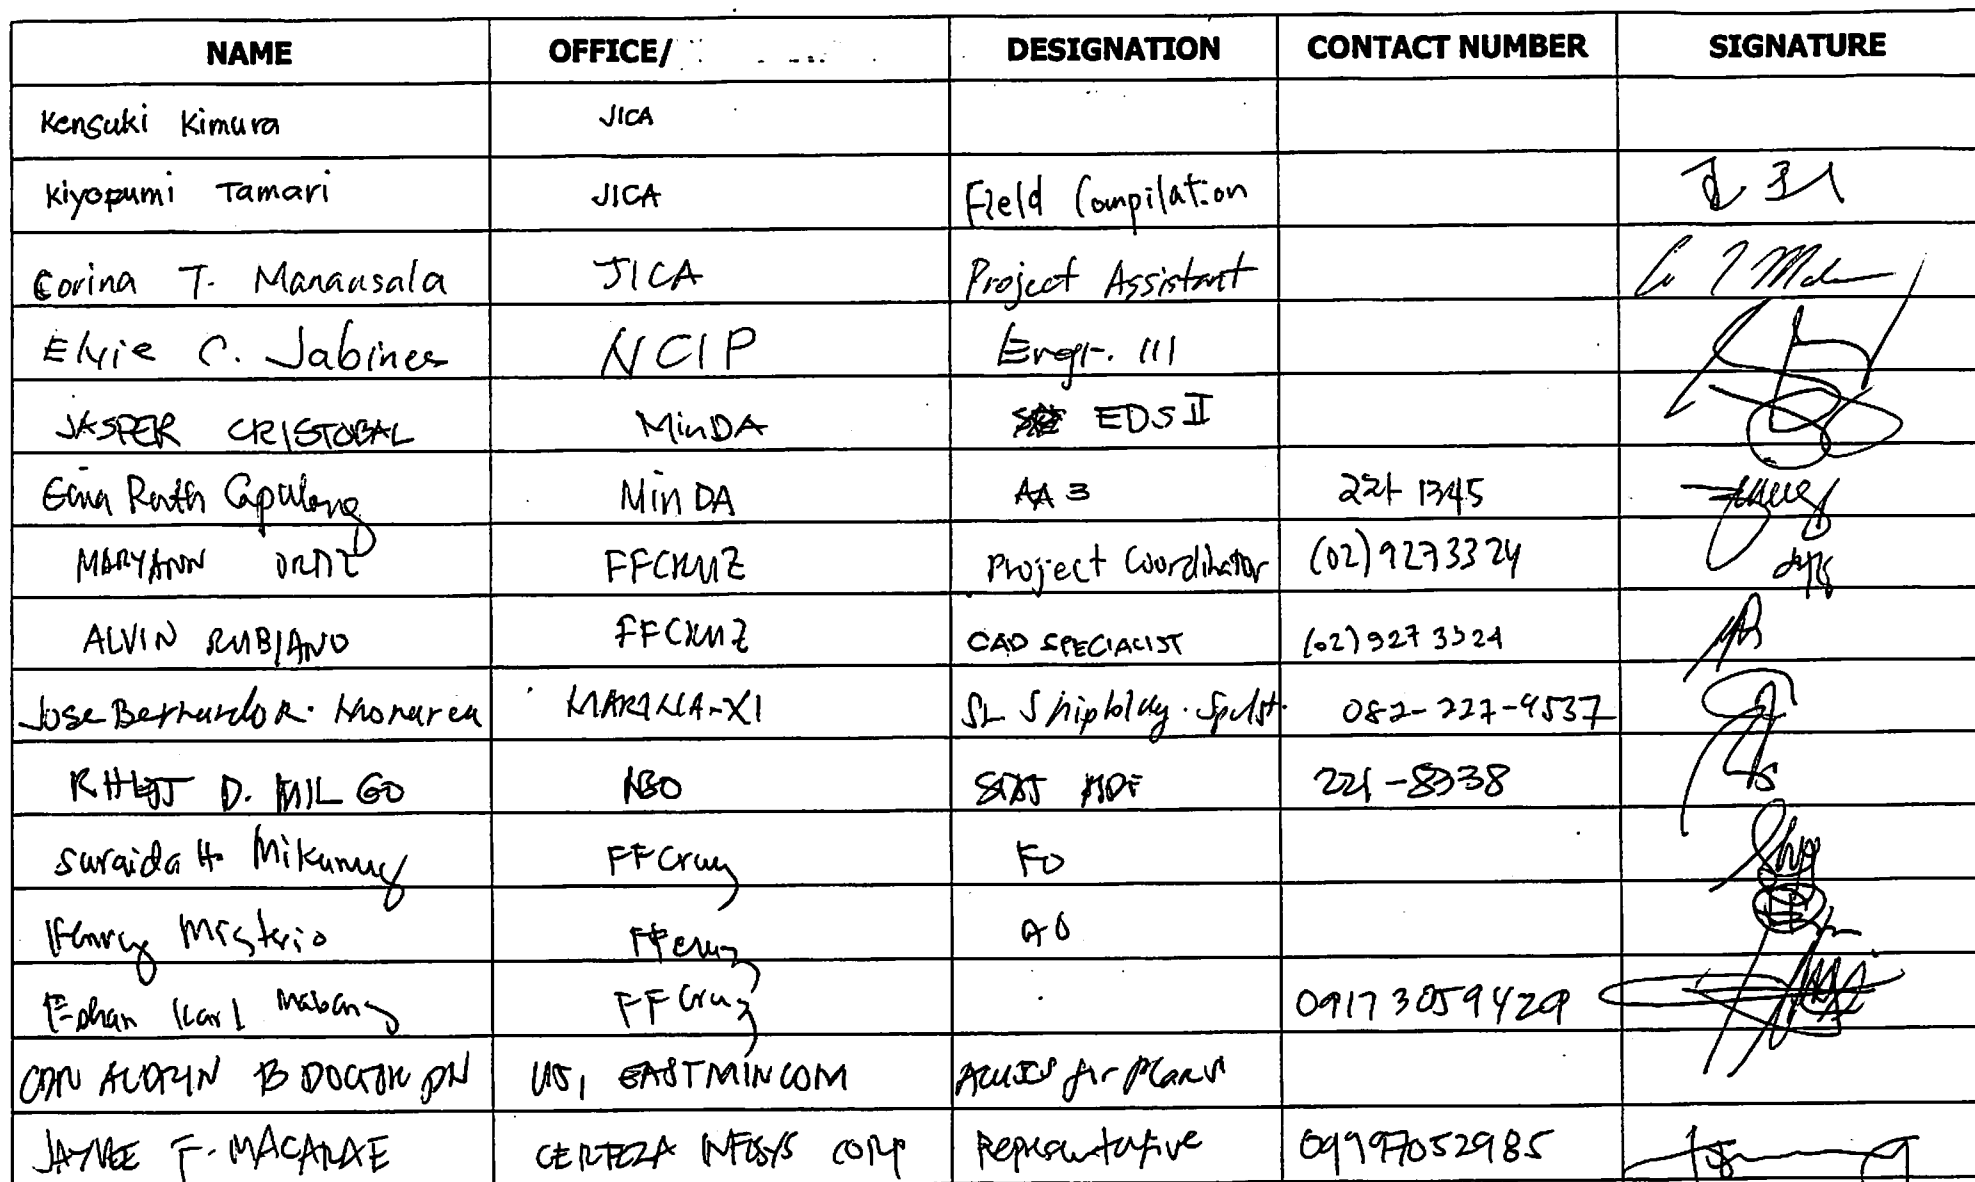 NAME OFFICE/ DESIGNATION CONTACT NUMBER SIGNATURE
Kensuki Kimura JICA
Kiyopumi Tamari JICA Field Compilation
Corina T. Manansala JICA Project Assistant
Elyie C. Jabines NCIP Engr. III
JASPER CRISTOBAL MinDA EDS II
Ruth MinDA AA 3 221 1345
MARYANN ORTIZ FFCRUZ Project Coordinator (02)9273324
ALVIN RUBIANO FFCRUZ CAD SPECIALIST (02)927 3324
Jose Bernardo R. Monarca MARINA-XI Sr Shipbldg. Spclst. 082-227-9537
D. MIL GO 221-8338
Suraida H. FFCruz FO
Henry Misterio FFCruz AO
Karl FFCruz 09173059429
EASTMINCOM for Plans
JAYVEE F. CERTEZA INFOSYS CORP Representative 09997052985